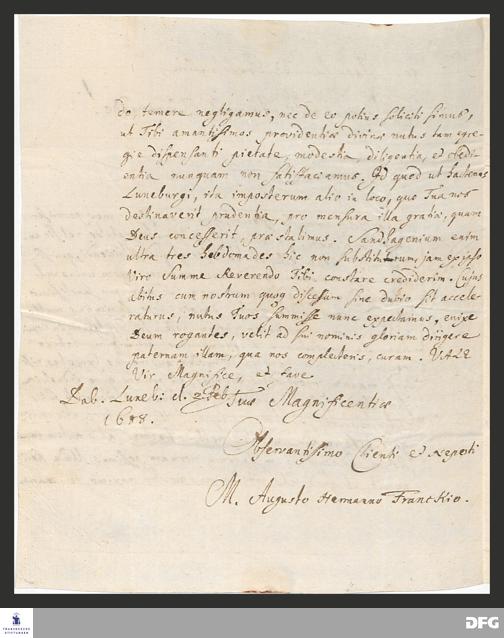 do, temere negligamus, nec de eo potius soliciti simus,
ut Tibi amantissimos providentiæ divinæ nutus tam egre-
gie dispensanti pietate, modestia, diligentia, et obedi-
entia nunquam non satisfaciamus. Id quod ut hactenus
Luneburgi, ita imposterum alio in loco, quo Tua nos
destinaverit prudentia, pro mensura illa gratiæ, quam
Deus concesserit præstabimus. Sandhagenium enim
ultra tres hebdomades hic non substiturum, jam ex ipso
Viro Summe Reverendo Tibi constare crediderim. Cujus
abitus cum nostrum quoq discessum sine dubio sit accele-
raturus, nutus Tuos summisse nunc expectamus, enixe
Deum rogantes, velit ad sui nominis gloriam dirigere
paternam illam, qua nos complecteris, curam. VALE
Vir Magnifice, et fave
Dab. Luneb: d. 2 Feb Tuæ Magnificentiæ
1688.
Observantissimo Clienti et Nepoti
M. Augusto Hermanno Franckio.
FRANCKESCHE STIFTUNGEN
DFG